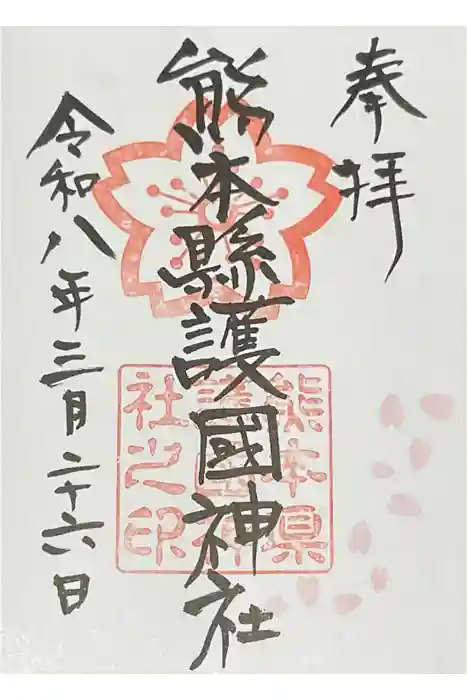 奉拝
熊本縣護國神社
熊本県
護國神
社之印
令和八年三月二十六日